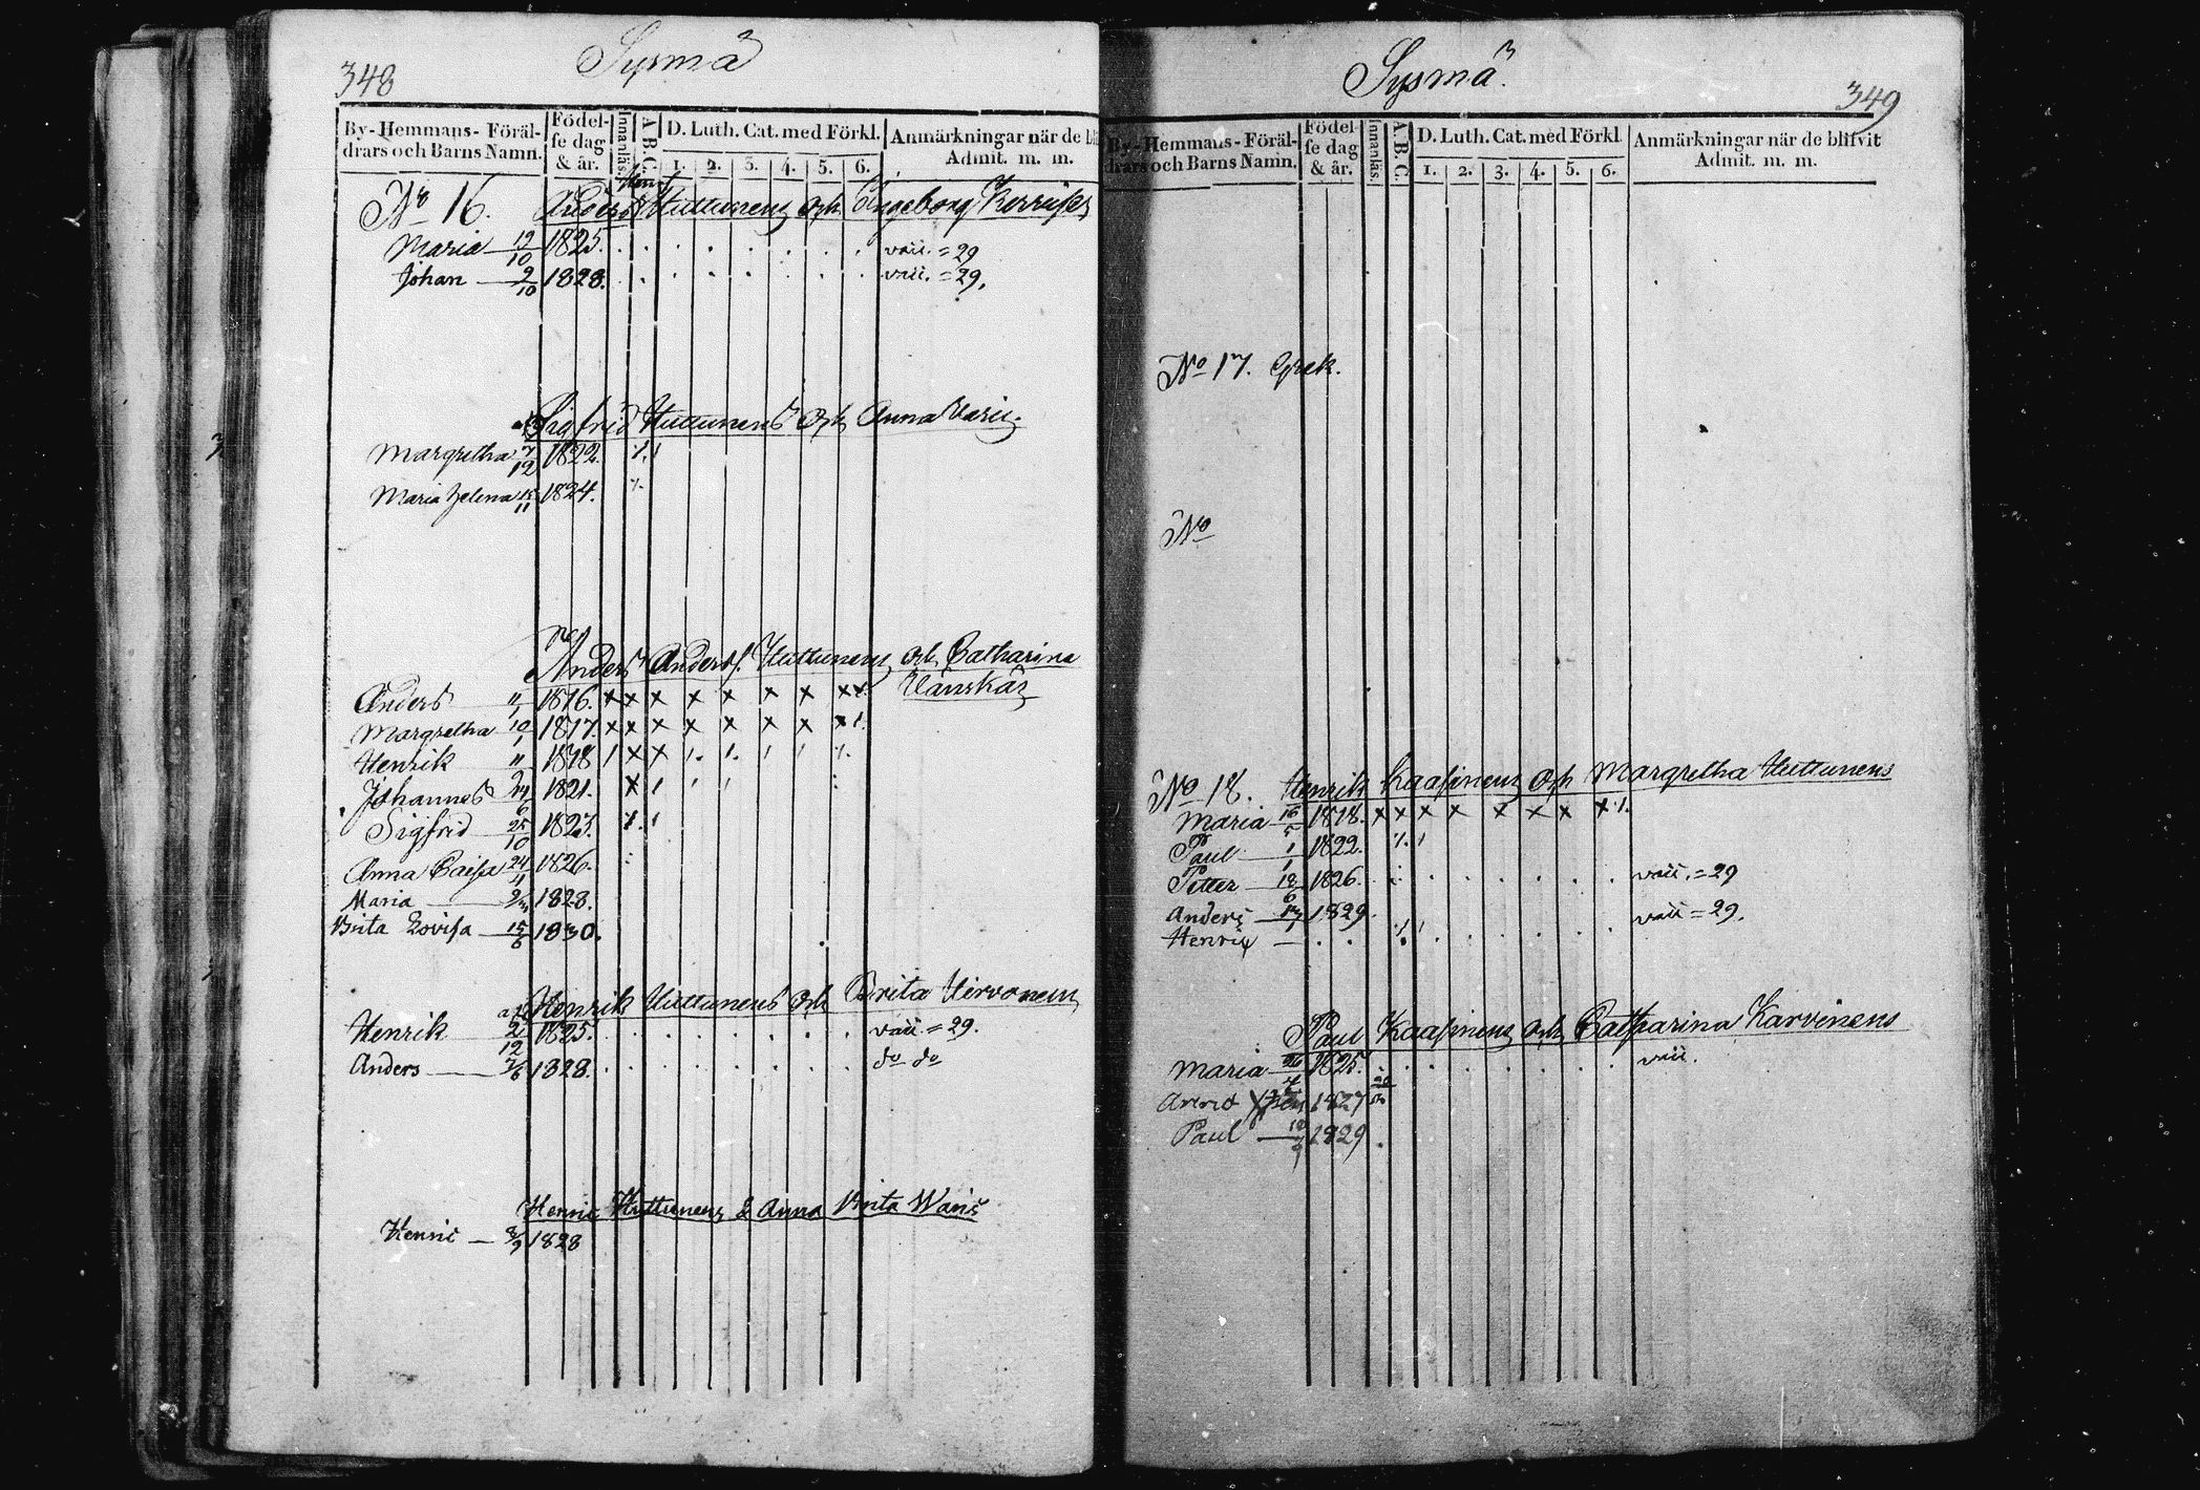 348
Sysmä
By-Hemmans-Föräl-
drars och Barns Namn.
Födel-
se dag
& år.
Innanläs.
A. B. C.
D. Luth. Cat. med Förkl.
1. 2. 3. 4. 5. 6.
Anmärkningar när de bli
Admit. m. m.
No 16. Anders Huttunens och Ingeborg
Maria 12/10 1825. vacc. = 29
Johan 9/10 1828. vacc. = 29.
Sigfrid Huttunens och Anna
Margretha 7/12 1822.
Maria Helena 15/11 1824.
Anders Anders. Huttunens och Catharina
Anders 1816. x x x x x x x x x
Margretha 10/1 1817. x x x x x x x x
Henrik 1818 x x
Johannes 1821. x
Sigfrid 25/10 1823.
Anna Caisa 24/4 1826.
Maria 1828.
Brita Lovisa 15/6 1830.
Henrik Huttunens och Brita Hirvonens
Henrik 2/12 1825. vacc = 29.
Anders 7/6 1828. do do
Henric Huttunens & Anna Brita
Henric 3/9 1828
Sysmä.
349
By-Hemmans-Föräl-
drars och Barns Namn.
Födel-
se dag
& år.
Innanläs.
A. B. C.
D. Luth. Cat. med Förkl
1. 2. 3. 4. 5. 6.
Anmärkningar när de blifvit
Admit. m. m.
No 17. Grek.
No
No 18. Henrik Kaasinens och Margretha Huttunens
Maria 16/5 1818. x x x x x x x x
Paul 1/1 1822.
Petter 18/6 1826. vacc. = 29
Anders 17/7 1829. vacc = 29.
Henric
Paul Kaasinens och Catharina Karvinens
Maria 26/4 1825. vacc.
1827
Paul 1829